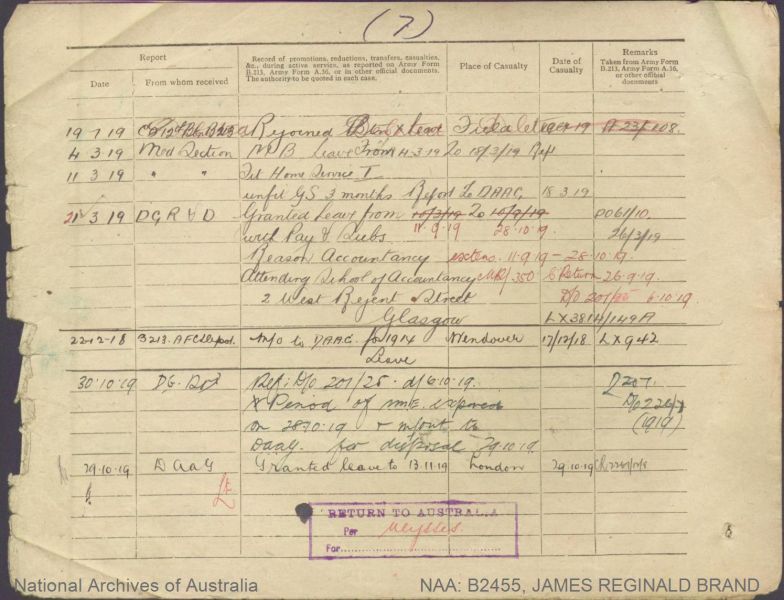 (7)
Report
Date
From whom received
Record of promotions, reductions, transfers, casualties, &c., during active service, as reported on Army Form B.213, Army Form A.36, or in other official documents. The authority to be quoted in each case.
Place of Casualty
Date of Casualty
Remarks
Taken from Army Form B.213, Army Form A.36, or other official documents
19 1 19 Rejoined
4 3 19 Med Section M B leave from 4-3-19 To 18/3/19 Ref
11 3 19 " " Fit Home Service I
unfit GS 3 months Report to DAAG 18 3 19
21 3 19 D G R & D Granted Leave from 10/3/19 To 10/9/19 DO61/10.
with Pay & Subs 11-9-19 28-10-19. 26/3/19
Reason Accountancy extens. 11-9-19 - 28-10-19.
Attending School of Accountancy MR/350 Return 26-9-19.
2 West Regent Street D/O 201/25 6-10-19
Glasgow LX3814/149A
22-12-18 B213. AFC M/O to DAAG for 1914 Wendover 17/12/18 LX942
Leave
30-10-19 DG. Ref: D/O 201/25 - d/6-10-19. 2207.
Period of nme expired D/O
on 28-10-19 & m/out to (1919)
DAAG. for disposal 29-10-19
29-10-19 DAAG Granted leave to 13-11-19 London 29-10-19
RETURN TO AUSTRALIA
Per Ulysses.
For
National Archives of Australia
NAA: B2455, JAMES REGINALD BRAND